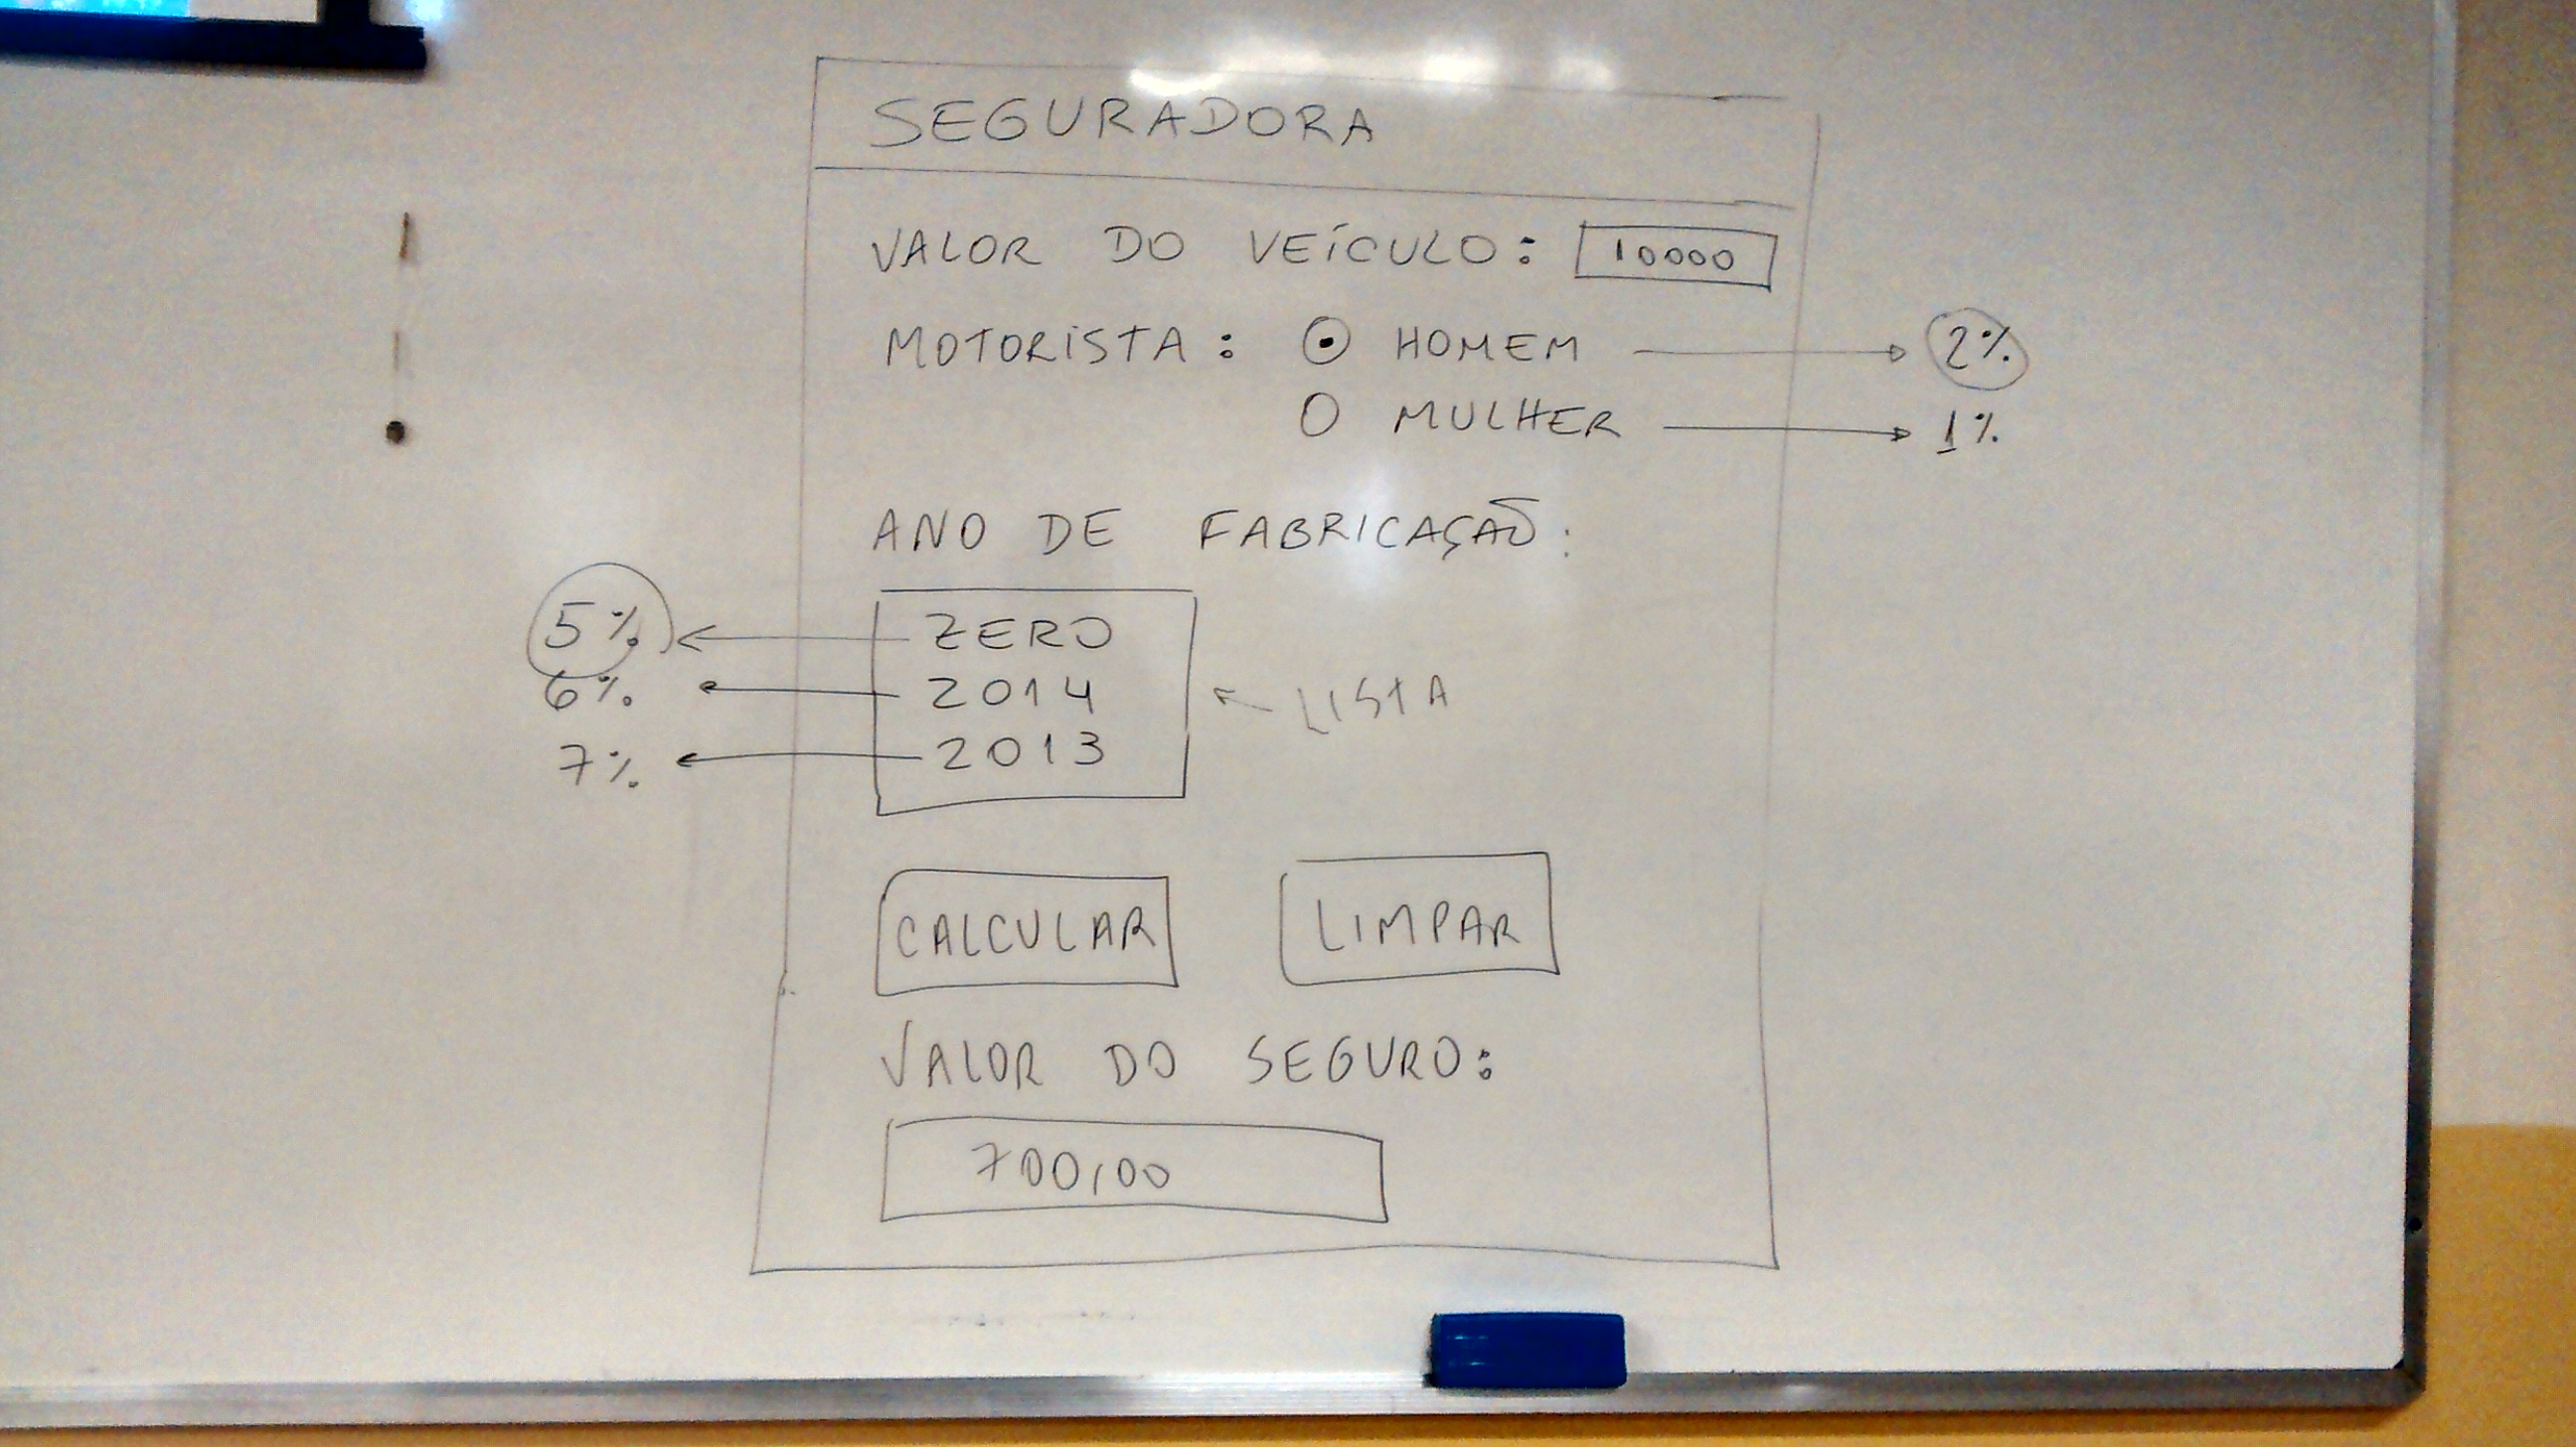 SEGURADORA
VALOR DO VEÍCULO: 10000
MOTORISTA: HOMEM 2%
MULHER 1%
ANO DE FABRICAÇÃO:
5% ZERO
6% 2014 LISTA
7% 2013
CALCULAR LIMPAR
VALOR DO SEGURO:
700,00